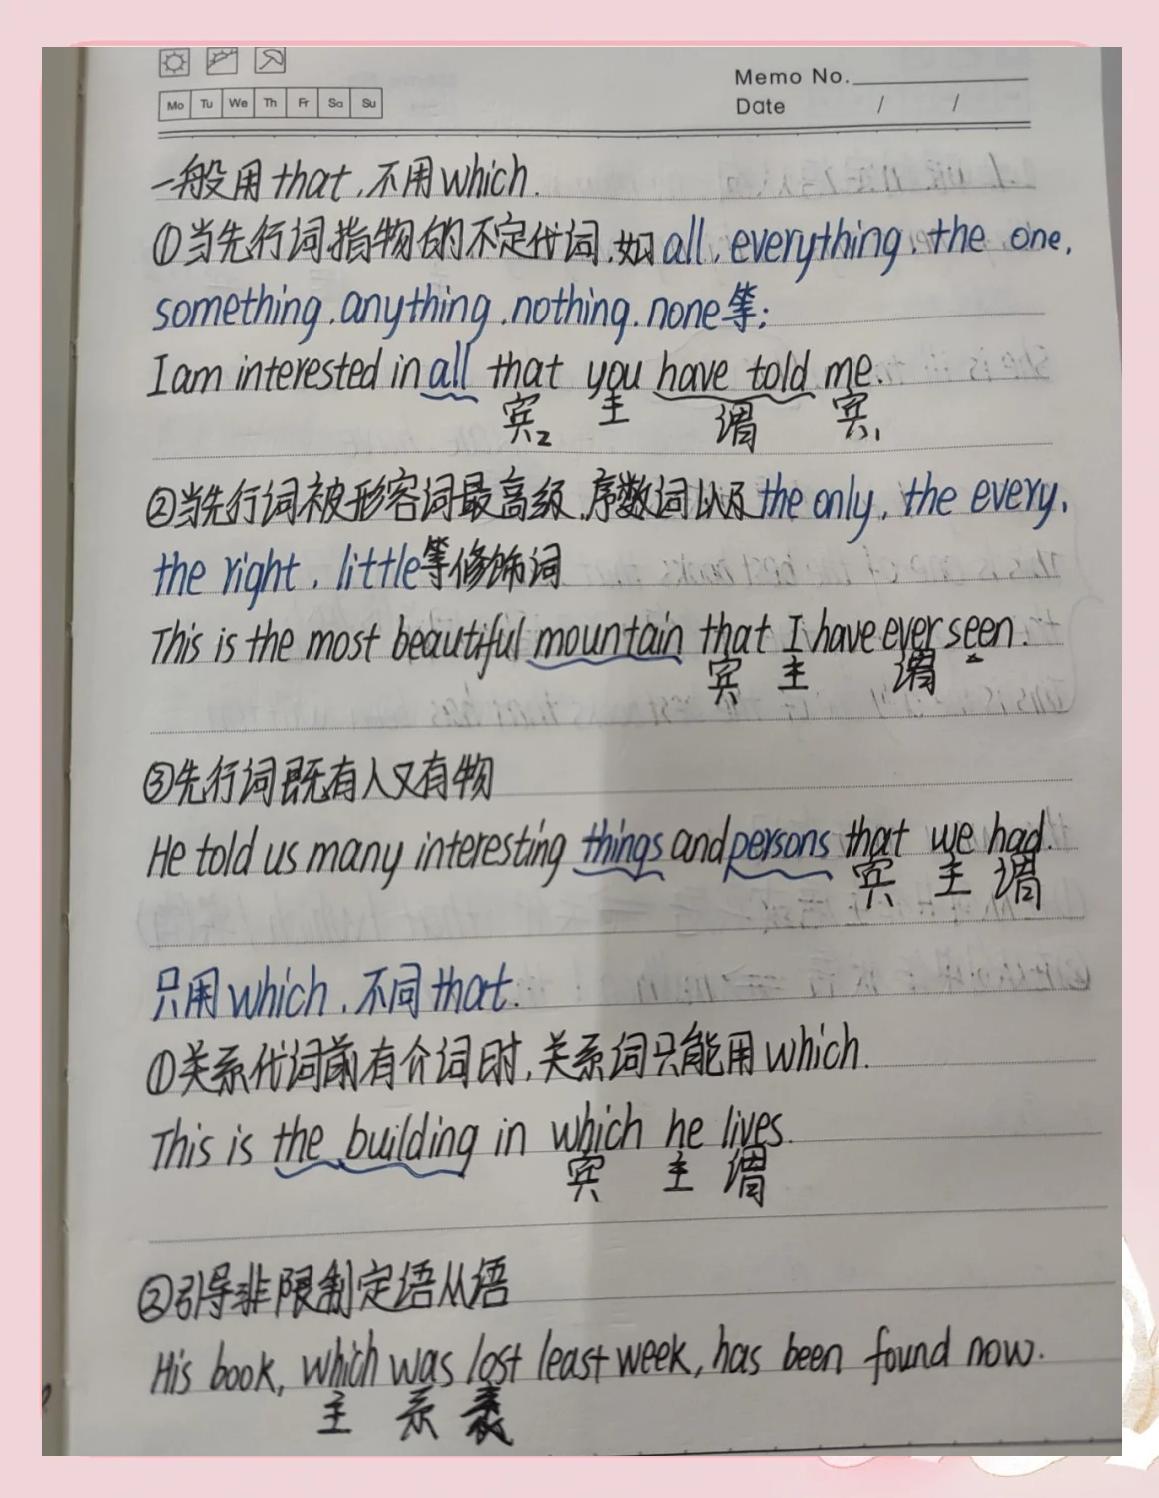 Memo No.
Mo Tu We Th Fr Sa Su
Date / /
一般用that,不用which.
①当先行词指物的不定代词,如all,everything,the one,
something,anything,nothing,none等;
I am interested in all that you have told me.
宾2 主 谓 宾1
②当先行词被形容词最高级,序数词以及the only,the every,
the right,little等修饰词
This is the most beautiful mountain that I have ever seen.
宾 主 谓
③先行词既有人又有物
He told us many interesting things and persons that we had.
宾 主 谓
只用which,不同that.
①关系代词前有介词时,关系词只能用which.
This is the building in which he lives.
宾 主 谓
②引导非限制定语从语
His book, which was lost least week, has been found now.
主 系 表